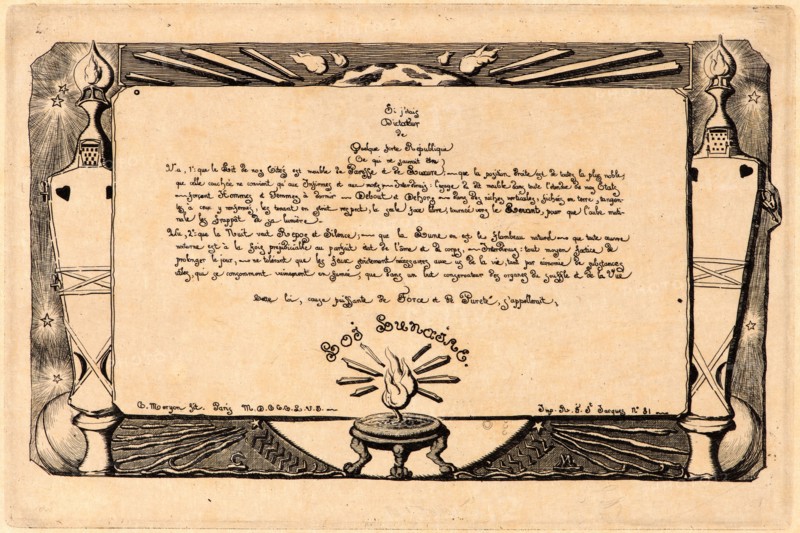 Si j'étais
Dictateur
de
Quelque forte République
(Ce qui ne saurait être)
Vu, 1°: que le Lit de nos Cités est meuble de Paresse et de Luxure — que la position droite est de toutes la plus noble;
que celle couchée ne convient qu'aux Infirmes et aux morts — Interdirais: l'usage du dit meuble dans toute l'étendue de mes Etats
— forçant Hommes et Femmes à dormir — Debout et Dehors — dans des niches verticales, fichées en terre,
à ceux y renfermés, les tenant en étroit respect; la face libre, tournée vers le Levant, pour que l'aube mati-
nale les frappât de sa lumière.
Vu, 2°: que la Nuit veut Repos et Silence; — que la Lune en est le flambeau naturel — que toute œuvre
nocturne est à la fois préjudiciable au parfait état de l'âme et du corps, — Interdirais: tout moyen factice de
prolonger le jour, — ne tolérant que les feux strictement nécessaires aux us de la vie; tant par économie de substances
utiles, qui se consomment vainement en fumée, que dans un but conservateur des organes du souffle et de la Vue
Cette loi, cause puissante de Force et de Pureté, s'appellerait,
Loi Lunaire.
C. Meryon fct. Paris M.D.C.C.C.L.V.I.
Imp. R. F. St. Jacques N° 81